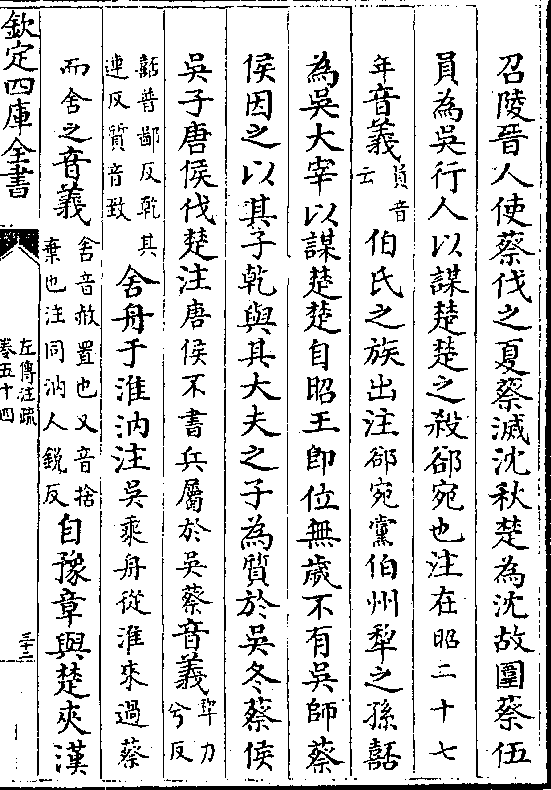 召陵晉人使蔡伐之夏蔡滅沈秋楚為沈故圍蔡伍
員為吳行人以謀楚楚之殺郤宛也注在昭二十七
年音義員音云伯氏之族出注郤宛黨伯州犂之孫嚭
為吳大宰以謀楚楚自昭王即位無歲不有吳師蔡
侯因之以其子乾與其大夫之子為質於吳冬蔡侯
吳子唐侯伐楚注唐侯不書兵屬於吳蔡音義犂力兮反
嚭普鄙反乾其連反質音致舍舟于淮汭注吳乘舟從淮來過蔡
而舍之音義舍音赦置也又音捨棄也注同汭人鋭反自豫章與楚夾漢
欽定四庫全書
左傳注疏
卷五十四
三十二